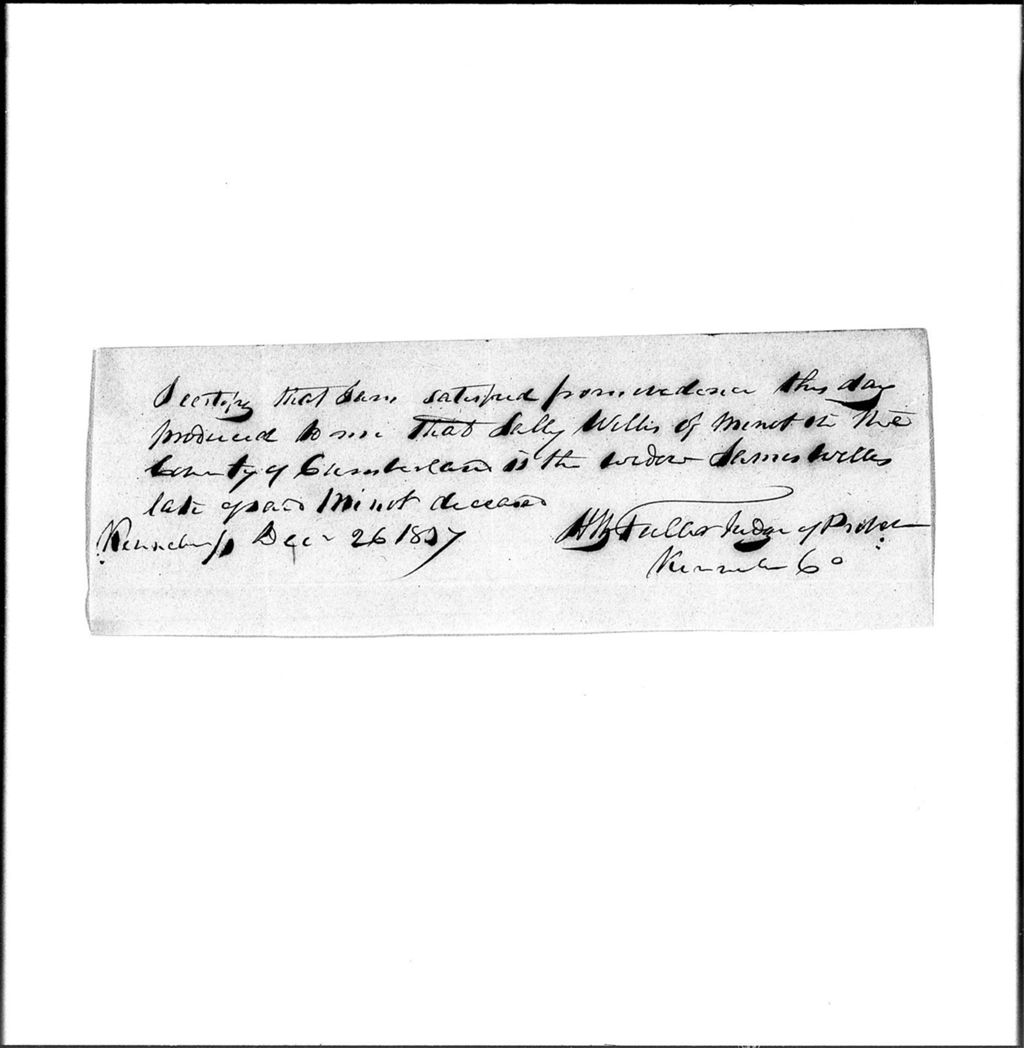 I certify that I am satisfied from evidence this day
produced to me that Sally Willis of Minot in the
County of Cumberland is the widow James Willis
late of said Minot deceased
Kennebec ss Decr 26 1837 H W Fuller Judge of Probate
Kennebec Co